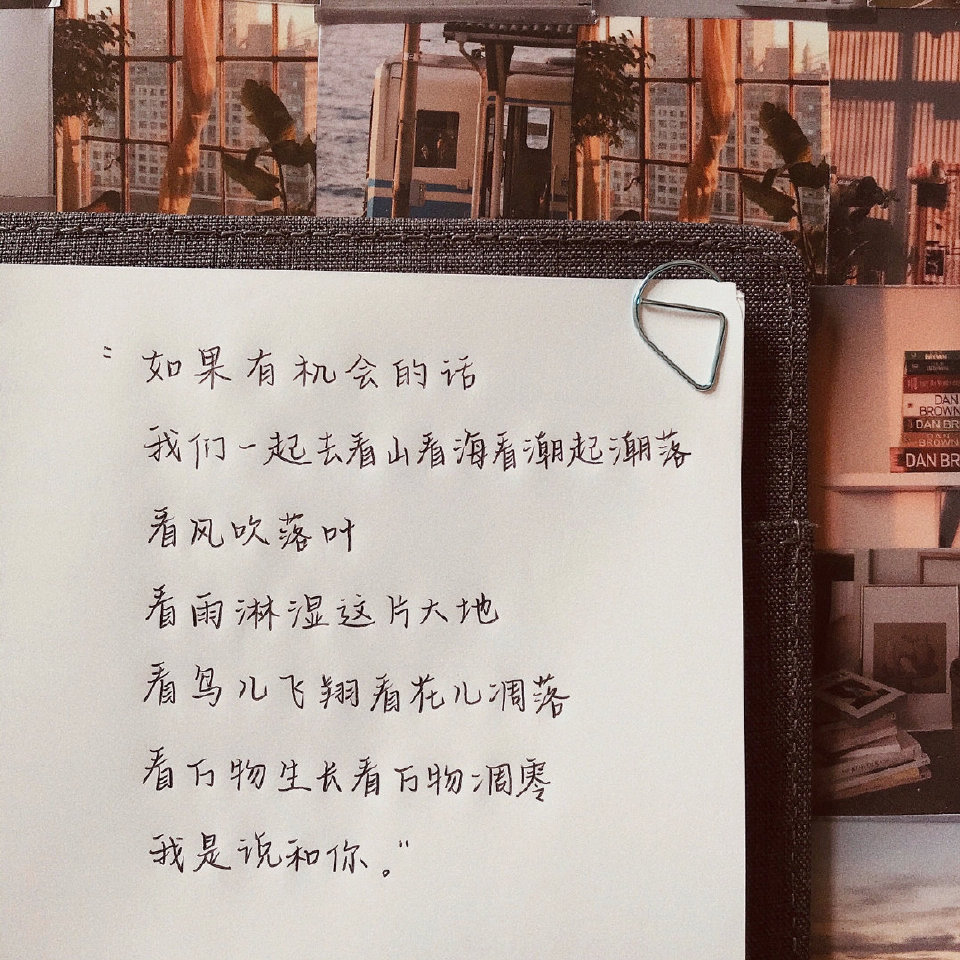 "如果有机会的话
我们一起去看山看海看潮起潮落
看风吹落叶
看雨淋湿这片大地
看鸟儿飞翔看花儿凋落
看万物生长看万物凋零
我是说和你。"
DAN
BROWN
DAN BR
DAN
BROWN
DAN BR